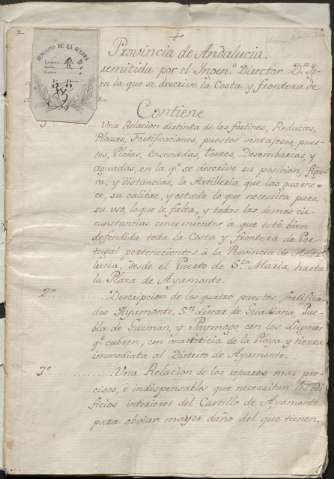 Provincia de Andalucia.
remitida por el Ingen.º Director D.n
en la que se describe la Costa y frontera de
Contiene
Una Relacion distinta de los fortines, Reductos,
Plazas, Fortificaciones, puestos ventajosos, puer-
tos, Playas, Ensenadas, Torres, Desembarcos, y
aguadas, en la q.e se descrive su posicion, figu-
ra, y distancias, la Artilleria, que las guarne-
ce, su calibre, y estado, lo que necesita para
su uso, lo que le falta, y todas las demas cir-
cunstancias concernientes a que esté bien
defendida toda la Costa y frontera de Por-
tugal pertenecientes à la Provincia de Anda-
lucia, desde el Puerto de S.ta Maria, hasta
la Plaza de Ayamonte.
2.º Descripcion de los quatro puestos fortifica-
dos Ayamonte, S.n Lucar de Guadiana, Pue-
bla de Guzman, y Paymogo con los
q.e cubren, con noticia de la Playa y tierra
inmediata al Distrito de Ayamonte.
3.º Una Relacion de los reparos mas pre-
cisos, è indispensables que necesitan los Edi-
ficios interiores del Castillo de Ayamonte
para obviar mayor daño del que tienen.